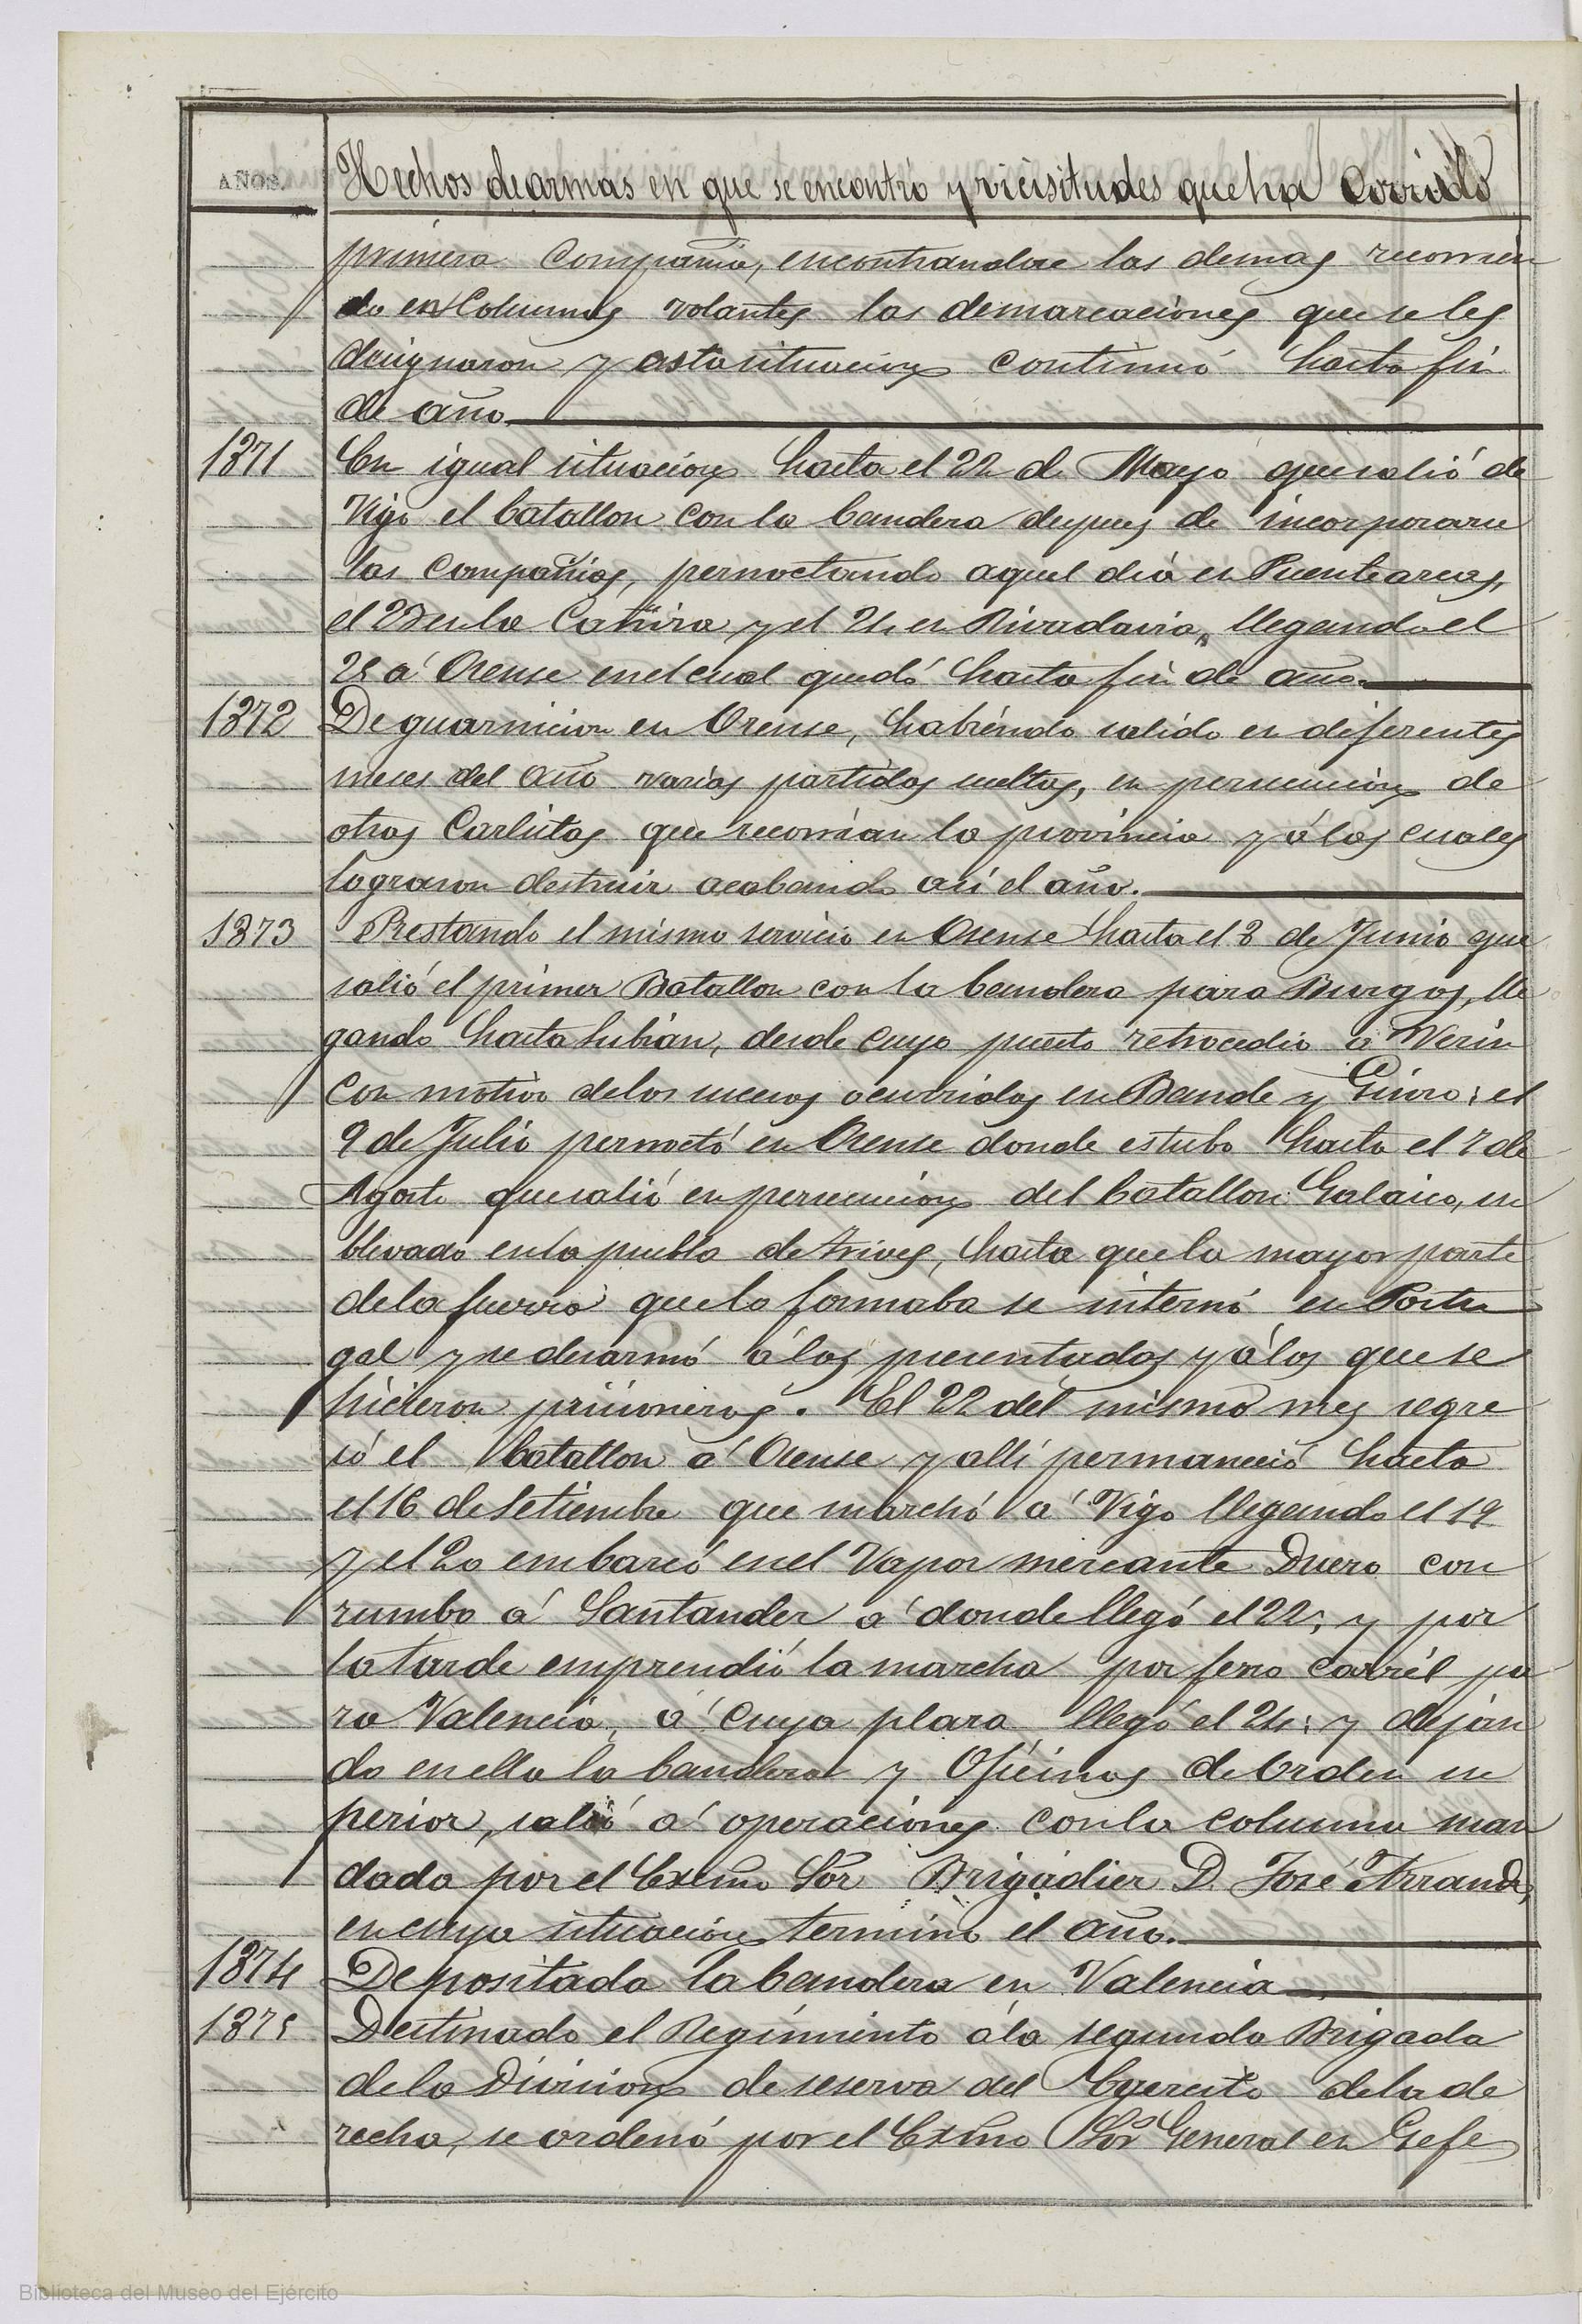 AÑOS. Hechos de armas en que se encontró y vicisitudes que ha corrido
primera Compañia, encontrandose las demas recorrien
do en Columnas volantes las demarcaciones que se les
designaron y esta situacion continuó hasta fin
de año.
1871 En igual situacion hasta el 22 de Mayo que salió de
Vigo el batallon con la bandera despues de incorporarse
las compañias, pernoctando aquel dia en Puenteareas,
el 23 en la Cañiza y el 24 en Rivadavia, llegando el
25 á Orense en el cual quedó hasta fin de año.
1872 De guarnicion en Orense, habiendo salido en diferentes
meses del año varias partidas sueltas, en persecucion de
otras Carlistas que recorrian la provincia y á las cuales
lograron destruir acabando asi el año.
1873 Prestando el mismo servicio en Orense hasta el 3 de Junio que
salió el primer Batallon con la bandera para Burgos, lle
gando hasta Lubian, desde cuyo punto retrocedio á Verin
con motivo de los sucesos ocurridos en Bande y Ginzo; el
9 de Julio pernoctó en Orense donde estubo hasta el 7 de
Agosto que salió en persecucion del batallon Galaico, su
blevado en la puebla de Trives, hasta que la mayor parte
de la fuerza que lo formaba se internó en Portu
gal y se desarmó á los presentados y á los que se
hicieron prisioneros. El 22 del mismo mes regre
só el batallon á Orense y alli permaneció hasta
el 16 de Setiembre que marchó á Vigo llegando el 19
y el 20 embarcó en el Vapor mercante Duero con
rumbo á Santander á donde llegó el 22; y por
la tarde emprendió la marcha por ferro carril pa
ra Valencia, á cuya plaza llegó el 24; y dejan
do en ella la bandera y Oficinas de orden su
perior, salió á operaciones con la columna man
dada por el Exmo Sor Brigadier D. José Arrando,
en cuya situacion terminó el año.
1874 Depositada la bandera en Valencia
1875 Destinado el Regimiento á la segunda Brigada
de la Division de reserva del Egercito de la de
recha, se ordenó por el Exmo Sor General en Gefe
Biblioteca del Museo del Ejército